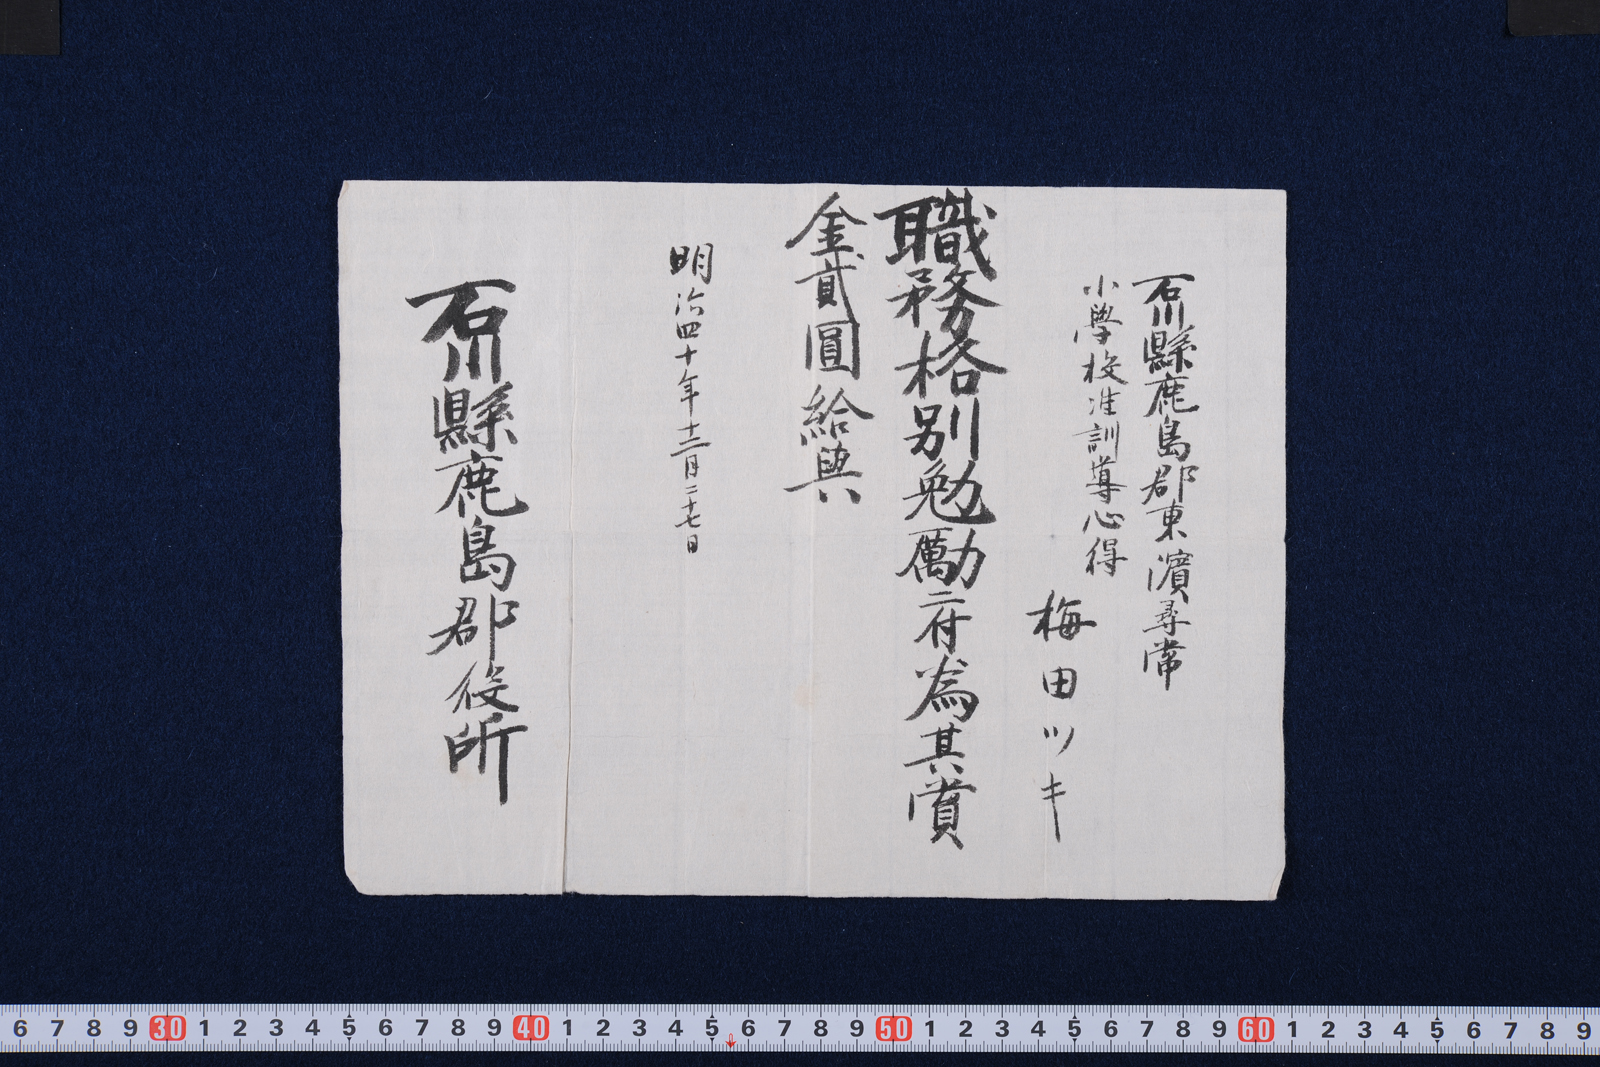 石川縣鹿島郡東濵尋常
小學校准訓導心得
梅田ツキ
職務格別勉勵ニ付為其賞
金貳圓給與
明治四十年十二月二十七日
石川縣鹿島郡役所
6 7 8 9 30 1 2 3 4 5 6 7 8 9 40 1 2 3 4 5 6 7 8 9 50 1 2 3 4 5 6 7 8 9 60 1 2 3 4 5 6 7 8 9